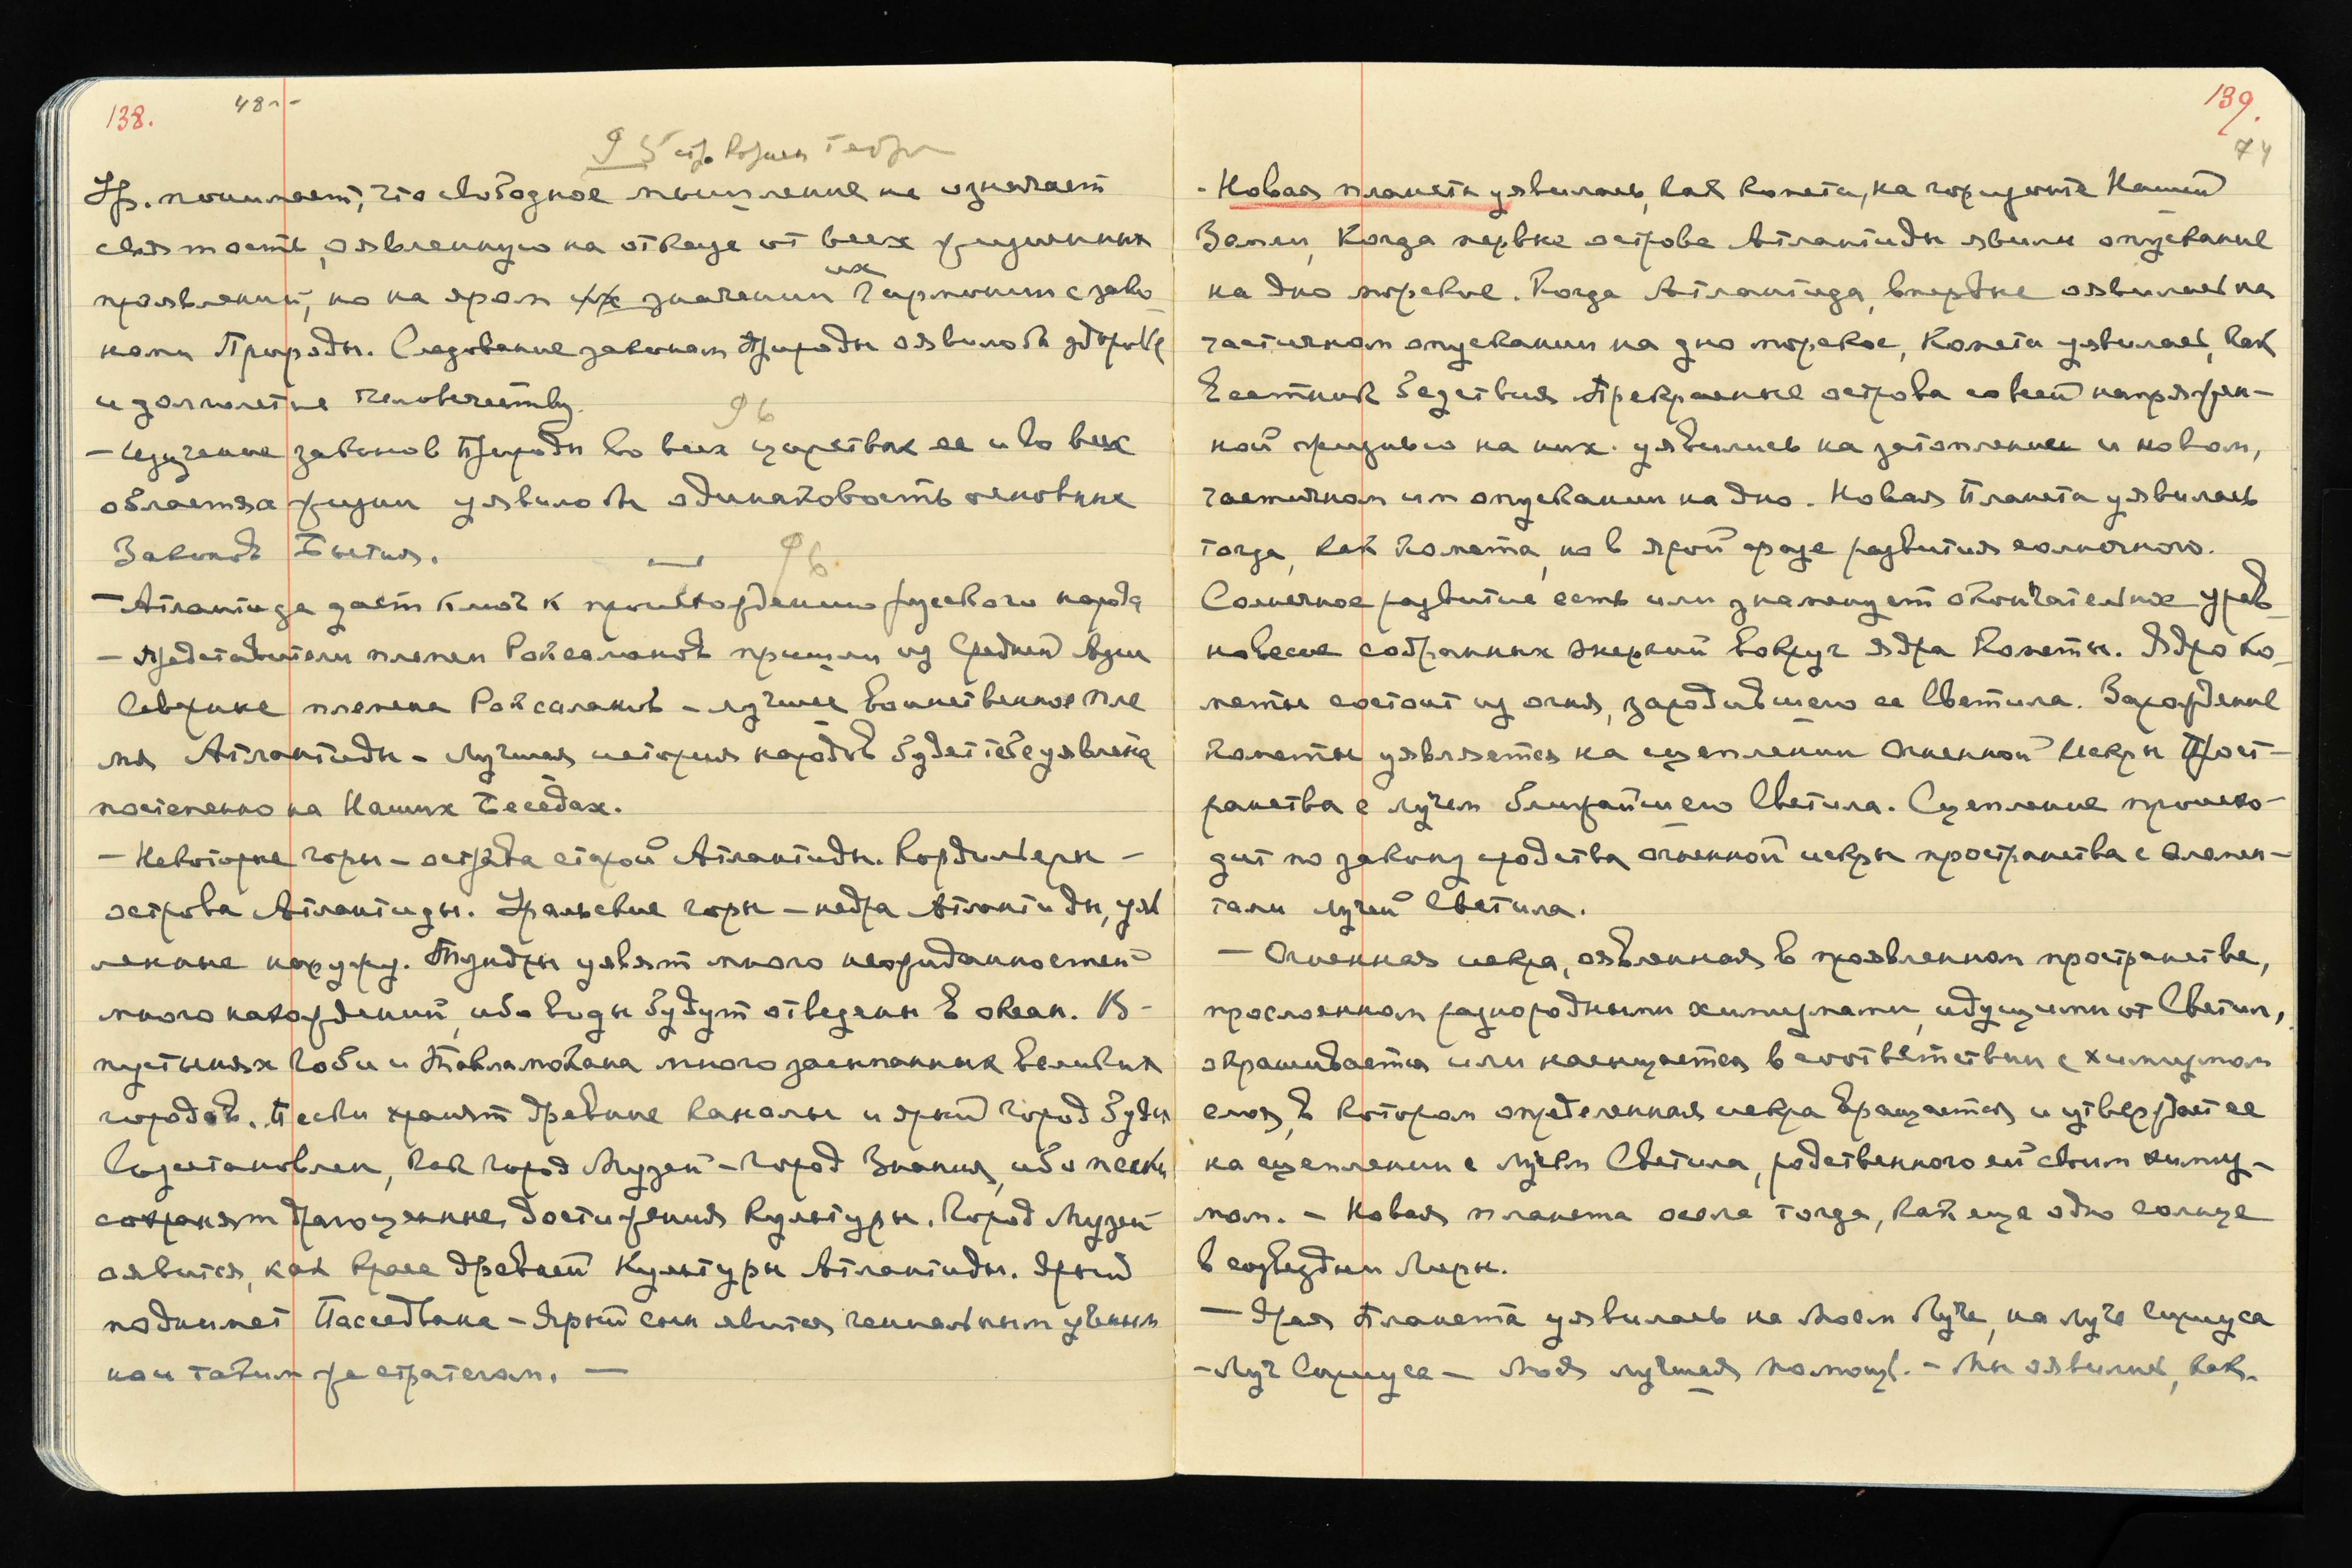 138.
48
95 стр.
Ур. понимает, что свободное мышление не означает
святость, оявленную на отказе от всех жизненных
проявлений, но на яром их значении Гармонии с зако-
нами Природы. Следование законам Природы оявило б здоровье
и долголетие человечеству.
96
- Изучение законов Природы во всех царствах ее и во всех
областях жизни уявило б одинаковость основных
Законов Бытия.
96
- Атлантида даст ключ к происхождению русского народа
- Представители племен Роксоланов пришли из Средней Азии
Северные племена Роксаланов - лучшее воинственное пле
мя Атлантиды - Лучшая история народов будет тебе уявлена
постепенно на Наших Беседах.
- Некоторые горы - острова старой Атлантиды. Кордильеры -
острова Атлантиды. Уральские горы - недра Атлантиды, уяв
ленные наружу. Тундры уявят много неожиданностей
много нахождений, ибо воды будут отведены в океан. В -
пустынях Гоби и Такламакана много засыпанных великих
городов. Пески хранят древние каналы и ярый город будет
восстановлен, как город Музей - город Знания, ибо пески
сохраняют драгоценные достижения культуры. Город Музей
оявится, как краса древней Культуры Атлантиды. Ярый
поднимет - Ярый сын явится гениальным ученым
но и таким же стратегом. -
139.
74
- Новая планета уявилась, как комета, на горизонте Нашей
Земли, когда первые острова Атлантиды явили опускание
на дно морское. Когда Атлантида впервые оявилась на
частичном опускании на дно морское, Комета уявилась, как
Вестник бедствия. Прекрасные острова со всей напряжен-
ной жизнью на них уявились на затоплении и новом,
частичном им опускании на дно. Новая Планета уявилась
тогда, как Комета, но в ярой фазе развития солнечного.
Солнечное развитие есть или знаменует окончательное урав
новесие собранных энергий вокруг ядра Кометы. Ядро Ко-
меты состоит из огня, зародившего ее Светила. Зарождение
кометы уявляется на сцеплении Огненной Искры Прост-
ранства с лучем ближайшего Светила. Сцепление происхо-
дит по закону сродства огненной искры пространства с элемен-
тами лучей Светила.
- Огненная искра, оявленная в проявленном пространстве,
прослоенном разнородными химизмами, идущими от Светил,
окрашивается или насыщается в соответствии с химизмом
слоя, в котором определенная искра вращается и утверждает ее
на сцеплении с лучем Светила, родственного ей своим химиз-
мом. - Новая планета осела тогда, как еще одно солнце
в созвездии Лиры.
- Ярая Планета уявилась на Моем Луче, на луче Сириуса
- Луч Сириуса - Моя лучшая помощь. - Мы оявились, как